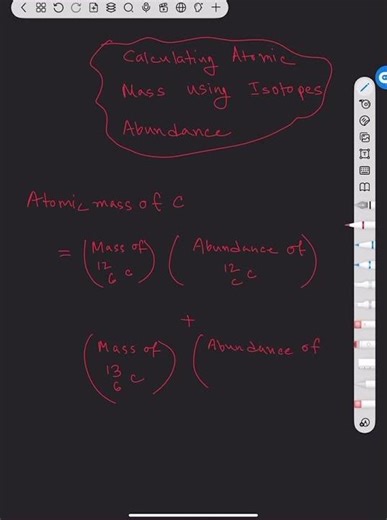 Calculating Atomic
Mass using Isotopes
Abundance
Atomic mass of C
= (Mass of ¹²₆C) (Abundance of ¹²cC)
+
(Mass of ¹³₆C) (Abundance of